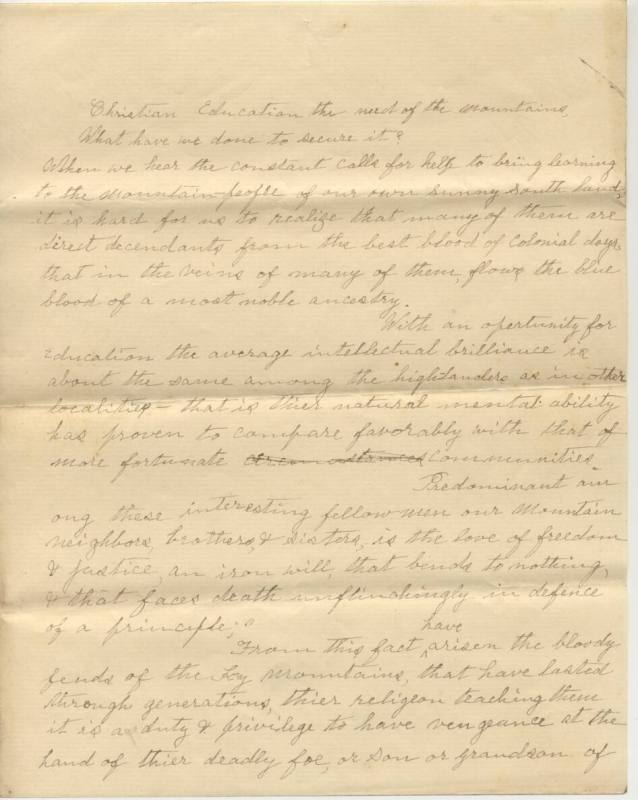 Christian Education the need of the mountains,
What have we done to secure it?
When we hear the constant calls for help to bring learning
to the mountain people of our own sunny south land,
it is hard for us to realize that many of them are
direct decendants from the best blood of Colonial days,
that in the veins of many of them, flows the blue
blood of a most noble ancestry.
With an opertunity for
Education the average intellectual brilliance is
about the same among the "highlanders as in other
localities - that is thier natural mental ability
has proven to compare favorably with that of
more fortunate circumstances communities
Predominant am
ong these interesting fellow men our mountain
neighbors, brothers, & sisters, is the love of freedom
& justice, an iron will, that bends to nothing,
& that faces death unflinchingly in defence
of a principle;
have
From this fact arisen the bloody
feuds of the Ky mountains, that have lasted
through generations, thier religion teaching them
it is a duty & privilege to have vengeance at the
hand of thier deadly foe, or son or grandson of